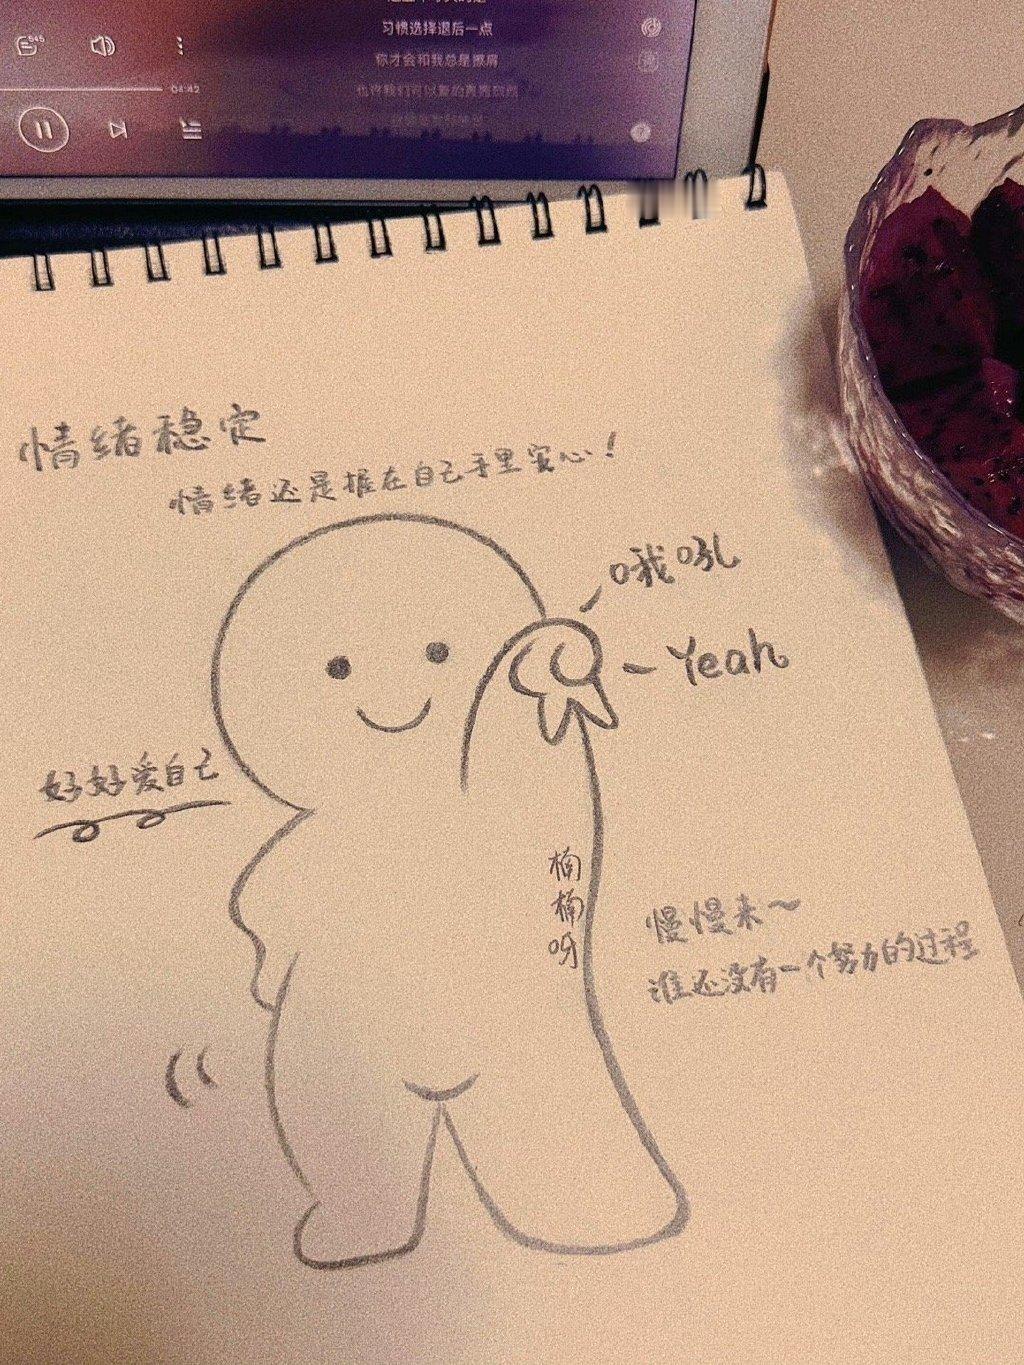 545
04:42
习惯选择退后一点
你才会和我总是擦肩
情绪稳定
情绪还是握在自己手里安心！
哦吼
Yeah
好好爱自己
楠
楠
呀
慢慢来～
谁还没有一个努力的过程